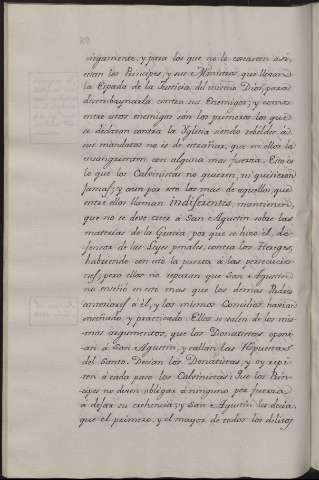 nigamente, y para los que no lo executen asi,
estan los Principes, y sus Ministros, que llevan
la Espada de la Justicia del mismo Dios, para
desembaynarla contra sus Enemigos; y como
entre estos enemigos son los primeros los que
se declaran contra la Yglesia siendo rebeldes a
sus mandatos no es de estrañar, que en ellos la
ensangrienten con alguna mas fuerza. Esto es
lo que los Calvinistas no quieren, ni quisieron
Jamas; y aun por esto los mas de aquellos, que
entre ellos llaman indiferentes, mantienen,
que no se deve citar à San Agustin sobre las
materias de la Gracia, por que se hizo el de-
fensor de las Leyes penales, contra los Hereges,
habiendo con esto la puerta à las persecucio-
nes; pero ellos no reparan que San Agustin
no enseñó en esto mas que los demas Padres
anteriores à él, y los mismos Concilios havian
enseñado, y practicado. Ellos se valen de los mis-
mos argumentos, que los Donatistas opon-
ian à San Agustin, y callan las Respuestas
del Santo. Decian los Donatistas, y oy repi-
ten à cada paso los Calvinistas: Que los Prin-
cipes no deven obligar à ninguno por fuerza
à dejar su crehencia; y San Agustin les decia,
que el primero, y el mayor de todos los delitos